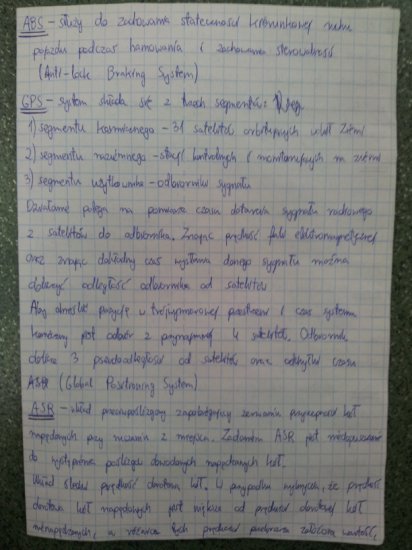 ABS - służy do zachowania stateczności kierunkowej ruchu
pojazdu podczas hamowania i zachowania sterowalności
(Anti-lock Braking System)
GPS - system składa się z trzech segmentów:
1) segmentu kosmicznego - 31 satelitów orbitujących wokół Ziemi
2) segmentu naziemnego - stacji kontrolnych i monitorujących na ziemi
3) segmentu użytkownika - odbiorników sygnału
Działanie polega na pomiarze czasu dotarcia sygnału radiowego
z satelitów do odbiornika. Znając prędkość fali elektromagnetycznej
oraz znając dokładny czas wysłania danego sygnału można
obliczyć odległość odbiornika od satelitów
Aby określić pozycję w trójwymiarowej przestrzeni i czas systemu
konieczny jest odbiór z przynajmniej 4 satelitów. Odbiornik
oblicza 3 pseudoodległości od satelitów oraz odchyłki czasu
(Global Positioning System)
ASR - układ przeciwpoślizgowy zapobiegający zerwaniu przyczepności kół
napędzanych przy ruszaniu z miejsca. Zadaniem ASR jest niedopuszczenie
do wystąpienia poślizgu dowodnych napędzanych kół.
Układ śledzi prędkość obrotową kół. W przypadku wykrycia, że prędkość
obrotowa kół napędzanych jest większa od prędkości obrotowej kół
nienapędzanych, a różnica tych prędkości przekracza założoną wartość,